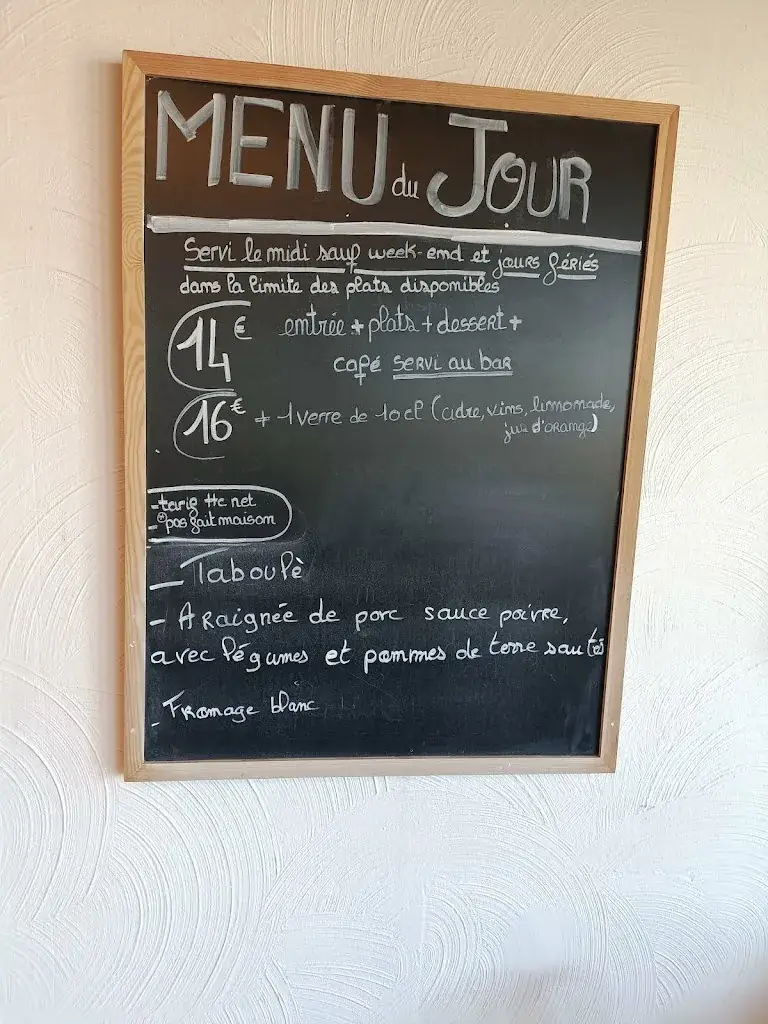 MENU du JOUR
Servi le midi sauf week-end et jours fériés
dans la limite des plats disponibles
14€ entrée + plats + dessert +
café servi au bar
16€ + 1 verre de 10 cl (cidre, vins, limonade,
jus d'orange)
- tarif ttc net
- * pas fait maison
- Taboulè
- Araignée de porc sauce poivre,
avec légumes et pommes de terre sautés
- Fromage blanc